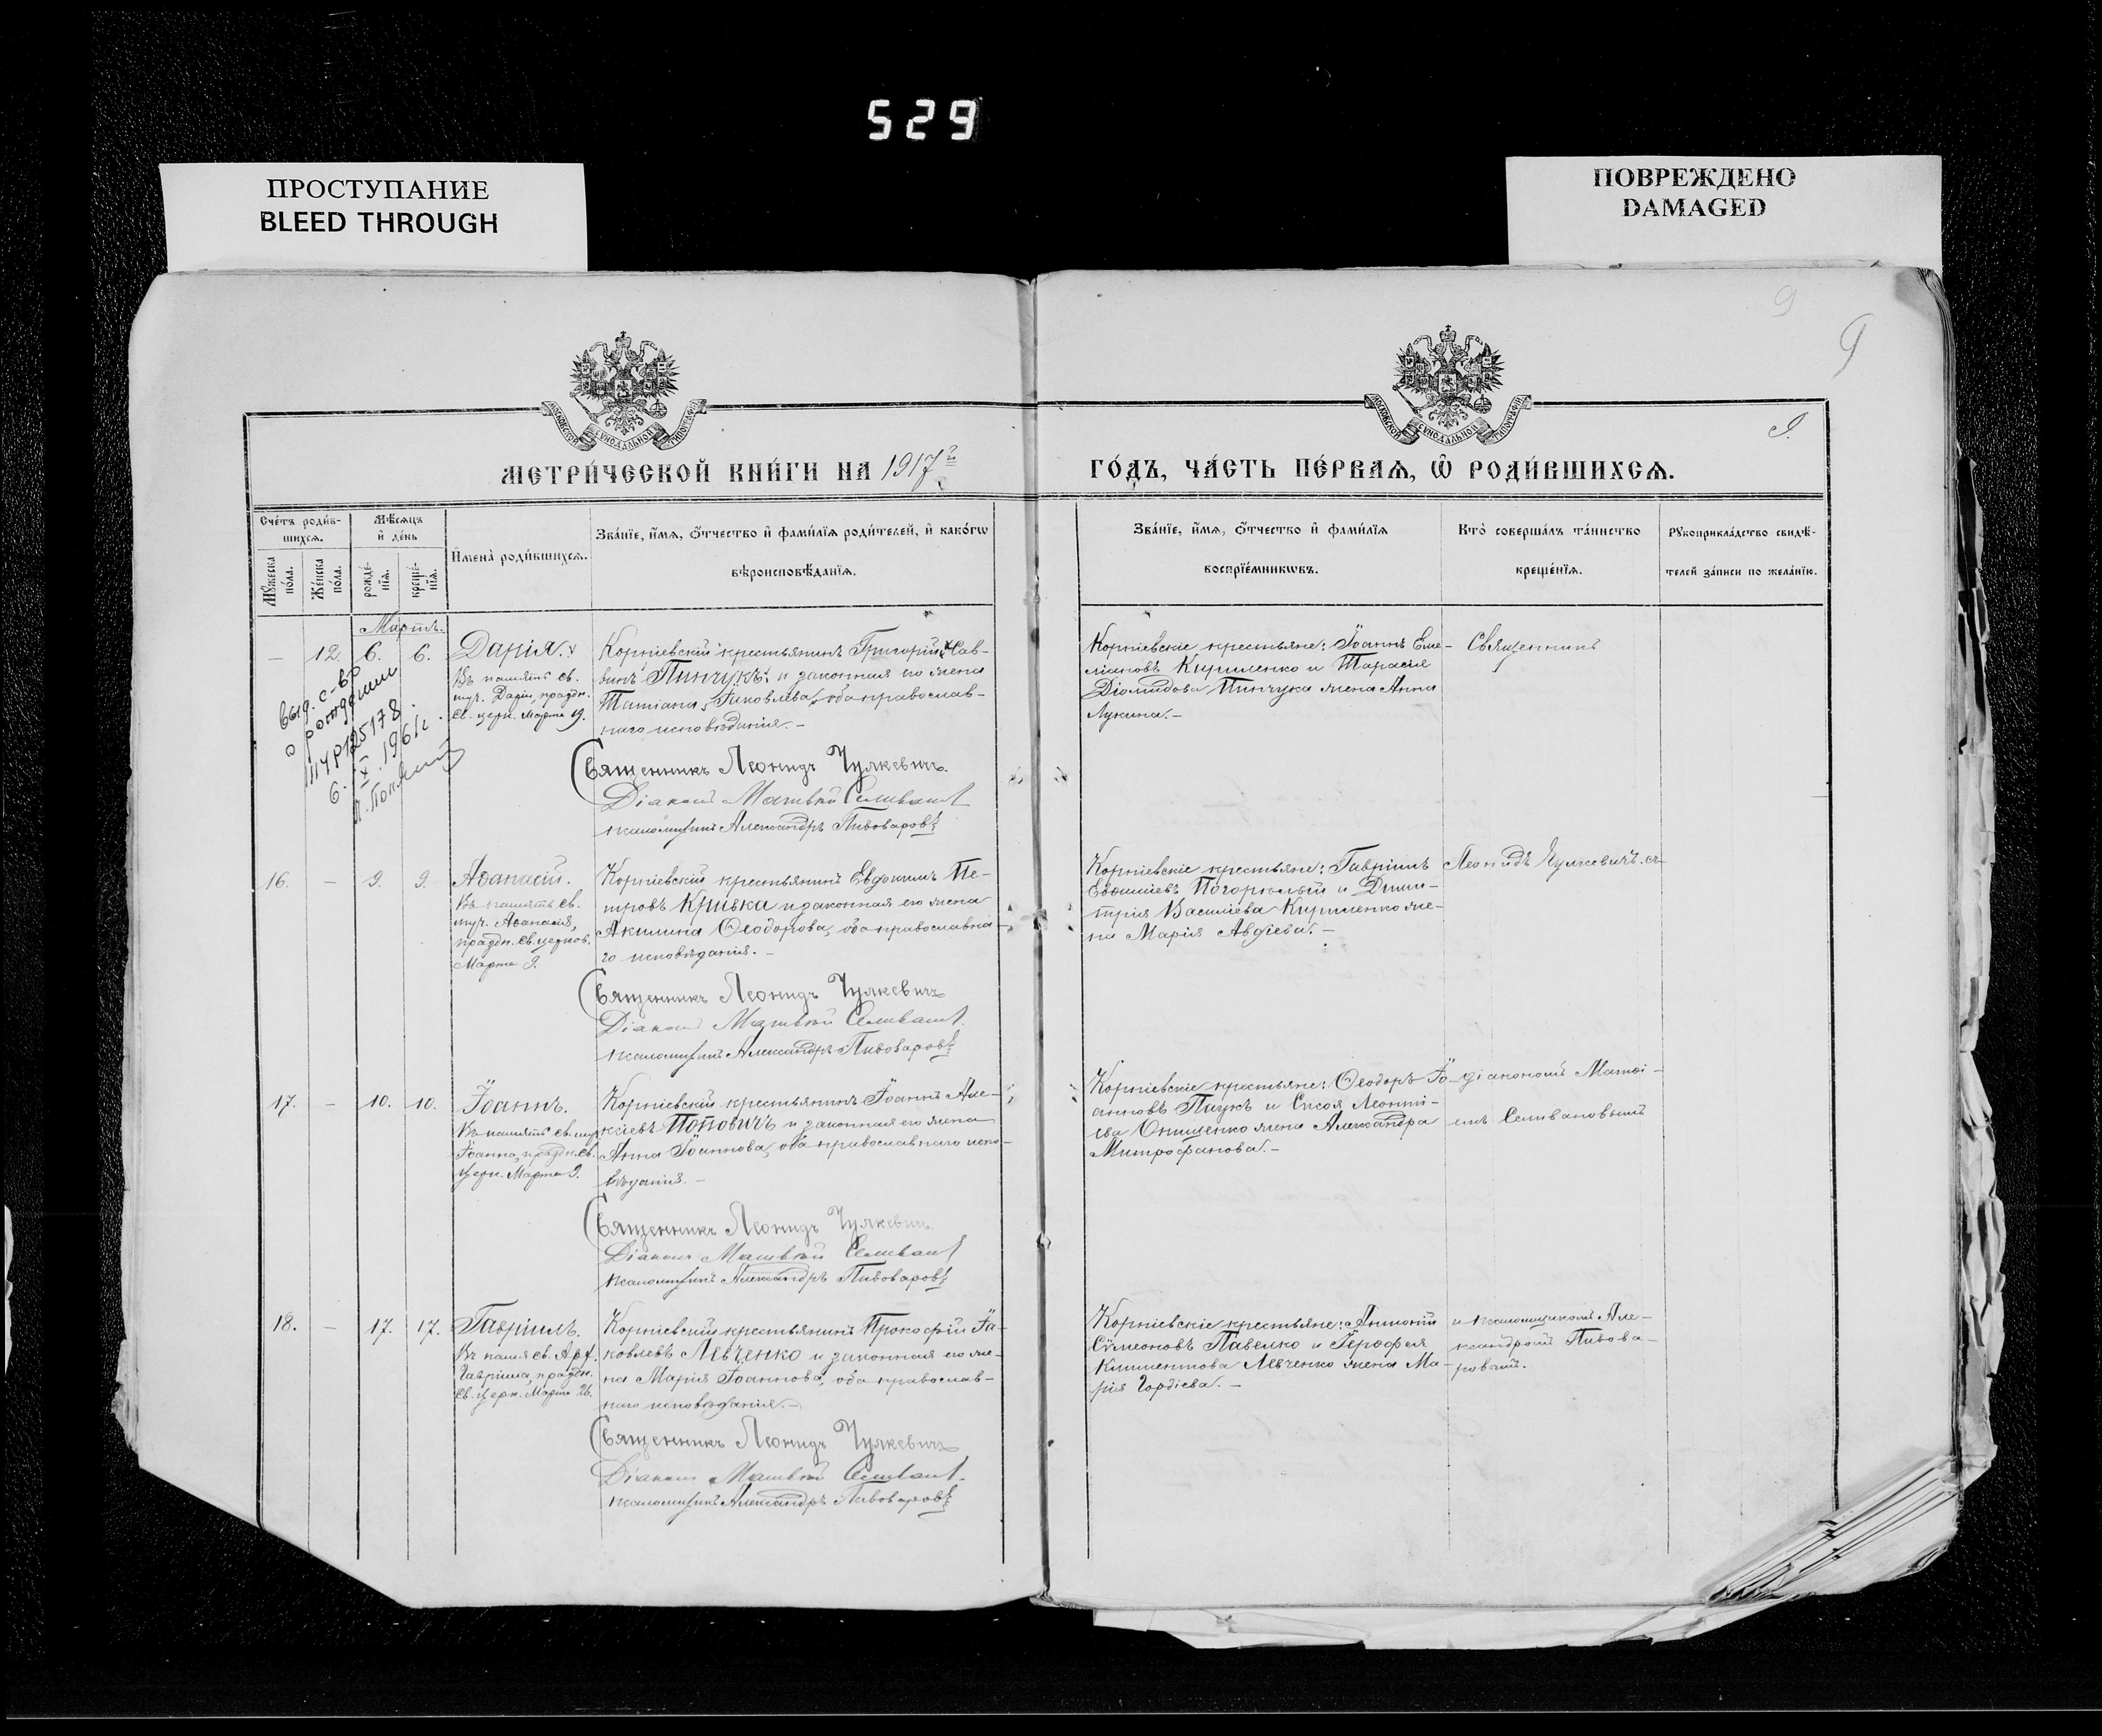 529
ПРОСТУПАНИЕ
BLEED THROUGH
ПОВРЕЖДЕНО
DAMAGED
9
9
9.
МОСКОВСКОЙ СѴНОДАЛЬНОЙ ТИПОГРАФІИ
МОСКОВСКОЙ СѴНОДАЛЬНОЙ ТИПОГРАФІИ
МЕТРИ́ЧЕСКОЙ КНИ́ГИ НА 1917 й
ГО́ДЪ, ЧА́СТЬ ПЕ́РВАѦ, Ѡ҆ РОДИ́ВШИХСѦ.
Сче́тъ роди́в-
шихсѧ.
Мꙋ́жеска
по́ла.
Же́нска
по́ла.
Мѣ́сѧцъ
и҆ де́нь
рожде́-
нїѧ.
креще́-
нїѧ.
И҆мена̀ роди́вшихсѧ.
Зва́нїе, и҆́мѧ, ѻ҆́тчество и҆ фами́лїѧ роди́телей, и҆ како́гѡ
вѣроисповѣ́данїѧ.
Зва́нїе, и҆́мѧ, ѻ҆́тчество и҆ фами́лїѧ
воспрїе́мникѡвъ.
Кто̀ соверша́лъ та́инство
креще́нїѧ.
Рꙋкоприкла́дство свидѣ́-
телей за́писи по жела́нїю.
Мартъ.
— 12. 6. 6.
Дарія.
Въ память св.
муч. Даріи, праздн.
св. церк. Марта 19.
выд. с-во
о рождении
125178
6. X. 1961 г.
Корніевскій крестьянинъ Григорій Сав-
винъ Пинчукъ и законная его жена
Татіана Яковлева, оба православ-
наго исповѣданія. —
Священникъ Леонидъ Чулкевичъ.
Діаконъ Матвѣй Селиванов
псаломщикъ Александръ Пивоваровъ
Корніевскіе крестьяне: Іоаннъ Еме-
ліановъ Кириленко и Тарасія
Діомидова Пинчука жена Анна
Лукина. —
Священникъ
16. — 9. 9.
Аѳанасій.
Въ память св.
муч. Аѳанасія,
праздн. св. церков.
Марта 9.
Корніевскій крестьянинъ Евдокимъ Пе-
тровъ Кривка и законная его жена
Акилина Ѳеодорова, оба православна-
го исповѣданія. —
Священникъ Леонидъ Чулкевичъ
Діаконъ Матвѣй Селиванов
псаломщикъ Александръ Пивоваровъ
Корніевскіе крестьяне: Гавріилъ
Евѳиміевъ Погорѣлый и Дими-
трія Васильева Кириленко же-
на Марія Авдіева. —
Леонидъ Чулкевичъ съ
17. — 10. 10.
Іоаннъ.
Въ память св. муч.
Іоанна, праздн. св.
церк. Марта 9.
Корніевскій крестьянинъ Іоаннъ Але-
ксіевъ Поповичъ и законная его жена
Анна Іоаннова, оба православнаго испо-
вѣданія. —
Священникъ Леонидъ Чулкевичъ.
Діаконъ Матвѣй Селиванов
псаломщикъ Александръ Пивоваровъ
Корніевскіе крестьяне: Ѳеодоръ Іо-
анновъ Пиукъ и Сисоя Леонті-
ева Онищенко жена Александра
Митрофанова. —
діакономъ Матѳі-
емъ Селивановымъ
18. — 17. 17.
Гавріилъ.
Въ память св. Арх.
Гавріила, праздн.
св. церк. Марта 26.
Корніевскій крестьянинъ Прокофій Іа-
ковлевъ Левченко и законная его же-
на Марія Іоаннова, оба православ-
наго исповѣданія. —
Священникъ Леонидъ Чулкевичъ
Діаконъ Матвѣй Селиванов
псаломщикъ Александръ Пивоваровъ
Корніевскіе крестьяне: Антоній
Сѵмеоновъ Павелко и Іероѳея
Климентова Левченко жена Ма-
рія Гордіева. —
и псаломщикомъ Але-
ксандромъ Пивова-
ровымъ.